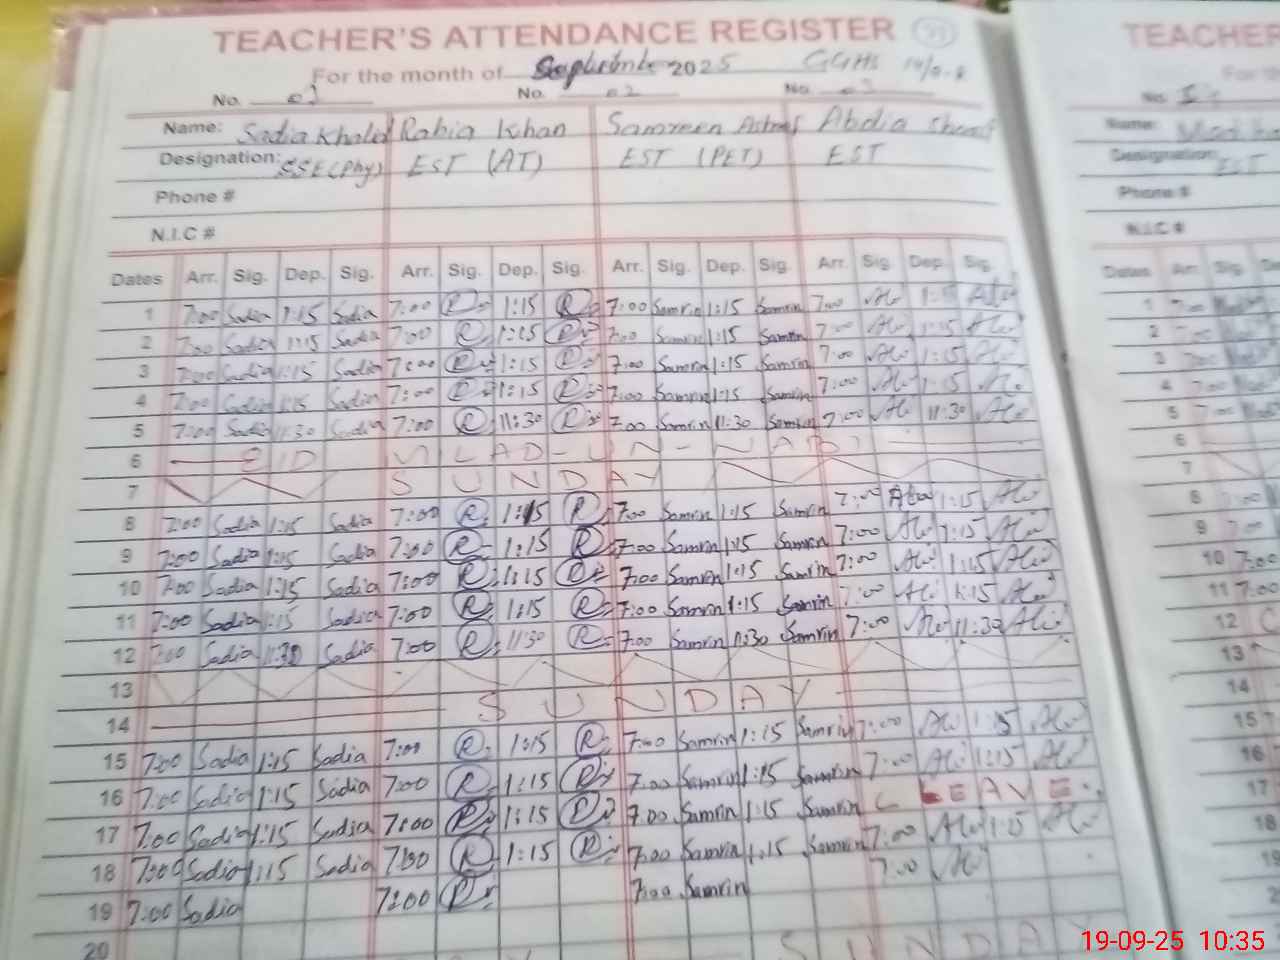 TEACHER'S ATTENDANCE REGISTER 37
For the month of September 2025 GGHS
No. 01 No. 02 No. 03
Name: Sadia Khalid Rabia Khan Samreen Abdia
Designation: SSE(Phy) EST (AT) EST (PET) EST
Phone #
N.I.C #
Dates Arr. Sig. Dep. Sig. Arr. Sig. Dep. Sig. Arr. Sig. Dep. Sig. Arr. Sig. Dep. Sig.
1 7:00 Sadia 1:15 Sadia 7:00 R 1:15 R 7:00 Samrin 1:15 Samrin 7:00 1:15
2 7:00 Sadia 1:15 Sadia 7:00 R 1:15 R 7:00 Samrin 1:15 Samrin 7:00 1:15
3 7:00 Sadia 1:15 Sadia 7:00 R 1:15 R 7:00 Samrin 1:15 Samrin 7:00 1:15
4 7:00 Sadia 1:15 Sadia 7:00 R 1:15 R 7:00 Samrin 1:15 Samrin 7:00 1:15
5 7:00 Sadia 11:30 Sadia 7:00 R 11:30 R 7:00 Samrin 11:30 Samrin 7:00 11:30
6 EID MILAD-UN-NABI
7 SUNDAY
8 7:00 Sadia 1:15 Sadia 7:00 R 1:15 R 7:00 Samrin 1:15 Samrin 7:00 1:15
9 7:00 Sadia 1:15 Sadia 7:00 R 1:15 R 7:00 Samrin 1:15 Samrin 7:00 1:15
10 7:00 Sadia 1:15 Sadia 7:00 R 1:15 R 7:00 Samrin 1:15 Samrin 7:00 1:15
11 7:00 Sadia 1:15 Sadia 7:00 R 1:15 R 7:00 Samrin 1:15 Samrin 7:00 1:15
12 7:00 Sadia 11:30 Sadia 7:00 R 11:30 R 7:00 Samrin 11:30 Samrin 7:00 11:30
13
14 SUNDAY
15 7:00 Sadia 1:15 Sadia 7:00 R 1:15 R 7:00 Samrin 1:15 Samrin 7:00 1:15
16 7:00 Sadia 1:15 Sadia 7:00 R 1:15 R 7:00 Samrin 1:15 Samrin 7:00 1:15
17 7:00 Sadia 1:15 Sadia 7:00 R 1:15 R 7:00 Samrin 1:15 Samrin C LEAVE
18 7:00 Sadia 1:15 Sadia 7:00 R 1:15 R 7:00 Samrin 1:15 Samrin 7:00 1:15
19 7:00 Sadia 7:00 R 7:00 Samrin 7:00
20 SUNDAY
TEACHER
Name:
Designation:
Phone #
N.I.C #
Dates Arr. Sig.
1
2
3
4
5
6
7
8
9
10 7:00
11 7:00
12
13
14
15
16
17
18
19
19-09-25 10:35